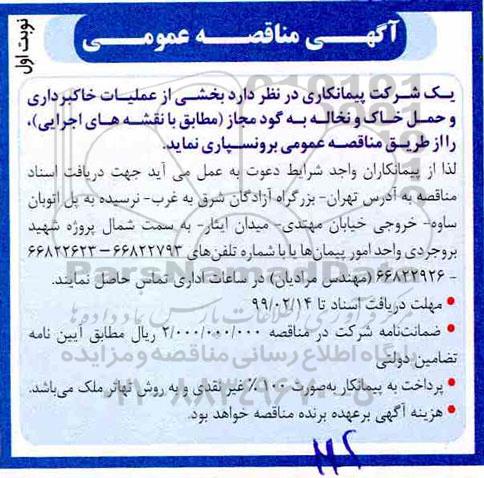 آگهی مناقصه عمومی
نوبت اول
یک شرکت پیمانکاری در نظر دارد بخشی از عملیات خاکبرداری
و حمل خاک و نخاله به گود مجاز (مطابق با نقشه های اجرایی)،
را از طریق مناقصه عمومی برونسپاری نماید.
لذا از پیمانکاران واجد شرایط دعوت به عمل می آید جهت دریافت اسناد
مناقصه به آدرس تهران- بزرگراه آزادگان شرق به غرب- نرسیده به پل اتوبان
ساوه- خروجی خیابان مهتدی- میدان ایثار- به سمت شمال پروژه شهید
بروجردی واحد امور پیمان‌ها یا با شماره تلفن‌های ۶۶۸۲۲۷۹۳–۶۶۸۲۲۶۲۳
- ۶۶۸۲۲۹۲۶ (مهندس مرادیان) در ساعات اداری تماس حاصل نمایند.
• مهلت دریافت اسناد تا ۹۹/۰۲/۱۴
• ضمانت‌نامه شرکت در مناقصه ۲/۰۰۰/۰۰۰/۰۰۰ ریال مطابق آیین نامه
تضامین دولتی
• پرداخت به پیمانکار به‌صورت ۱۰۰٪ غیر نقدی و به روش تهاتر ملک می‌باشد.
• هزینه آگهی برعهده برنده مناقصه خواهد بود.
ParsNamadData
پایگاه اطلاع رسانی مناقصه و مزایده